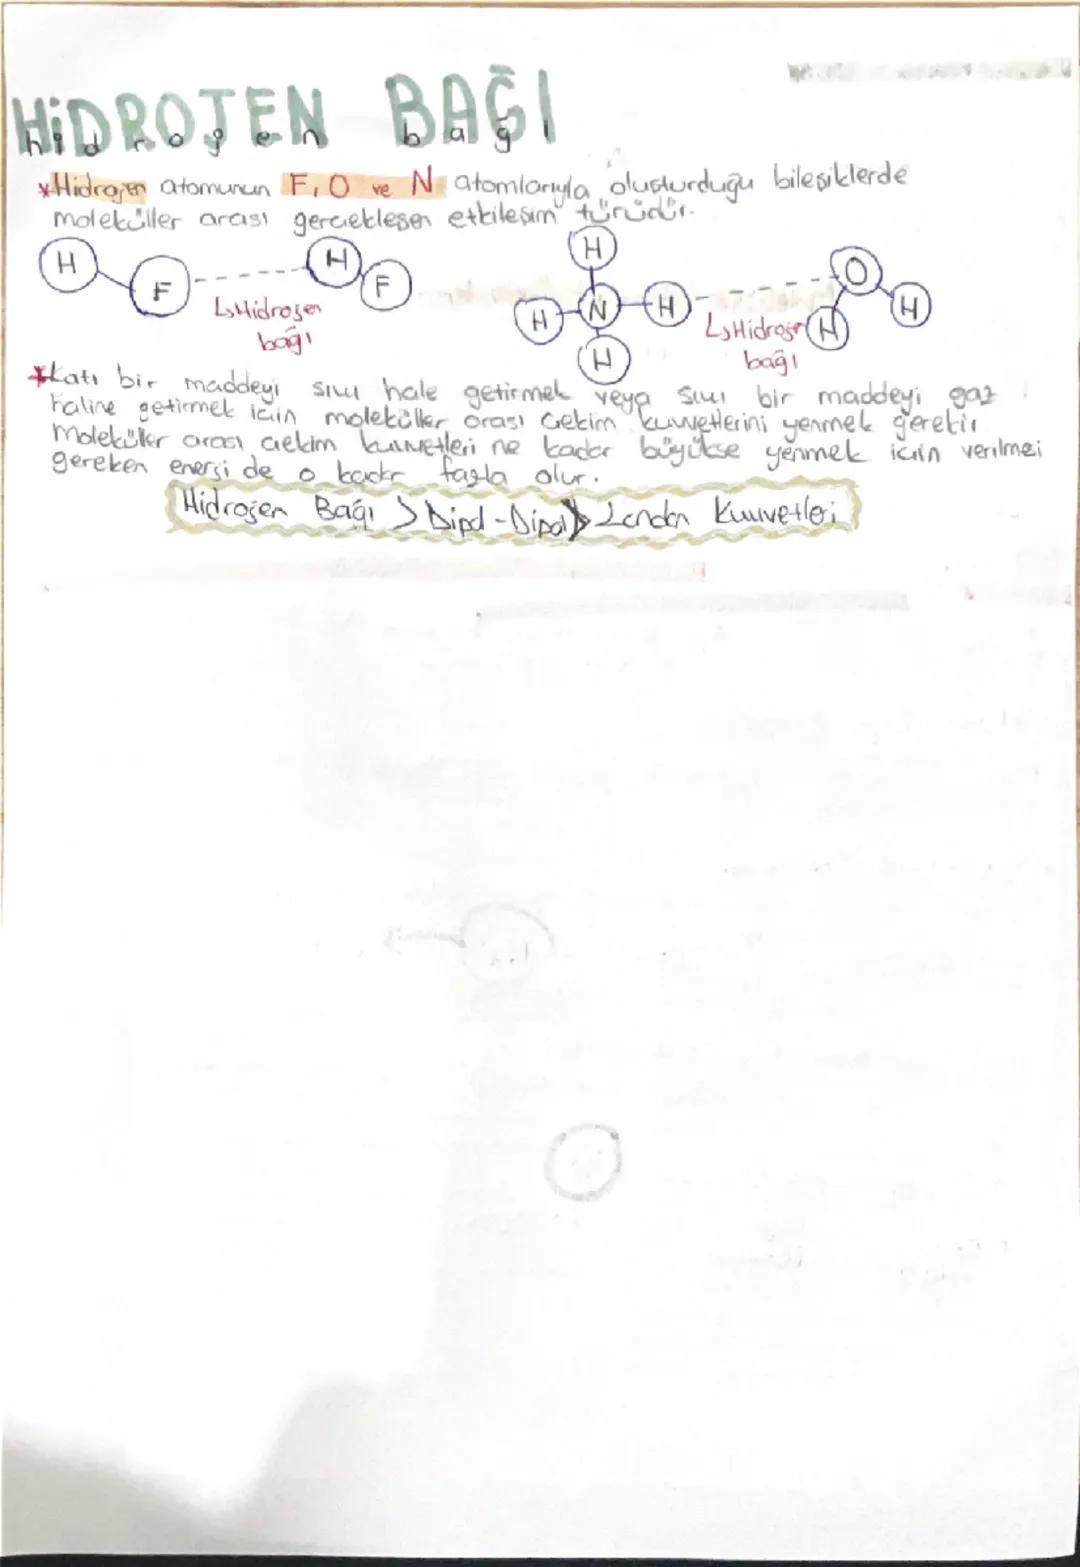 HİDROJEN BAĞI
hidrojen bağı
*Hidrojen atomunun F, O ve N atomlarıyla oluşturduğu bileşiklerde
moleküller arası gerçekleşen etkileşim türüdür.
H F H F
↳Hidrojen
bağı
H H N H H O H H
↳Hidrojen
bağı
*Katı bir maddeyi sıvı hale getirmek veya sıvı bir maddeyi gaz
haline getirmek için moleküller arası çekim kuvvetlerini yenmek gerekir.
Moleküller arası çekim kuvvetleri ne kadar büyükse yenmek için verilmesi
gereken enerji de o kadar fazla olur.
Hidrojen Bağı > Dipol-Dipol > London Kuvvetleri